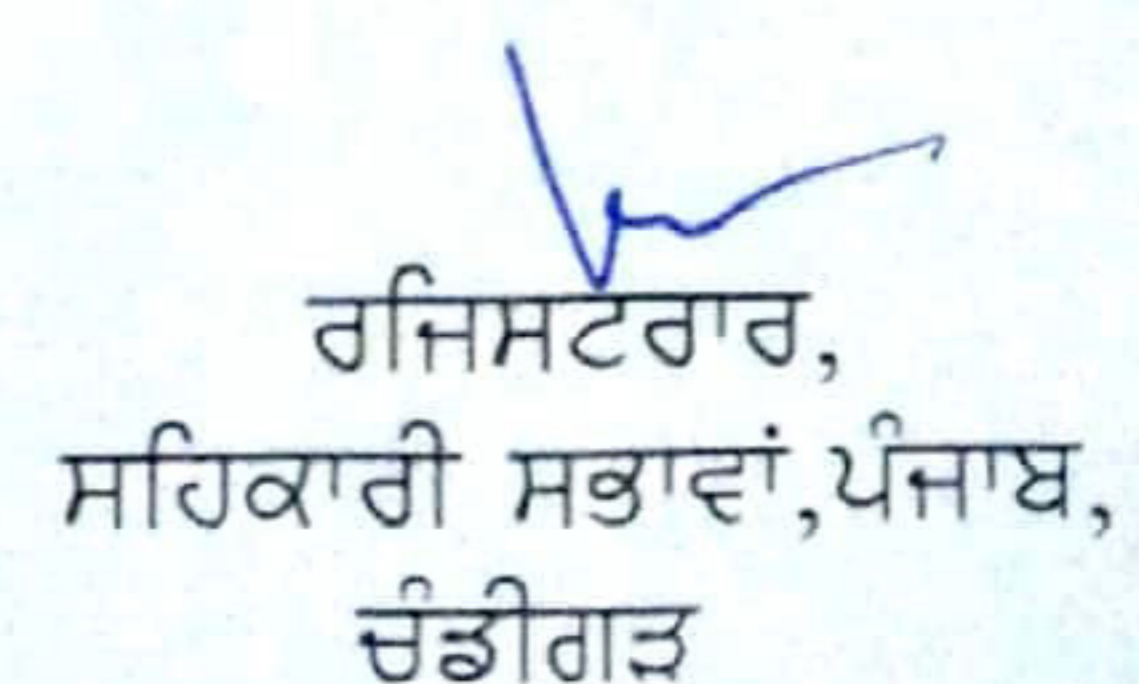 ਰਜਿਸਟਰਾਰ,
ਸਹਿਕਾਰੀ ਸਭਾਵਾਂ,ਪੰਜਾਬ,
ਚੰਡੀਗੜ